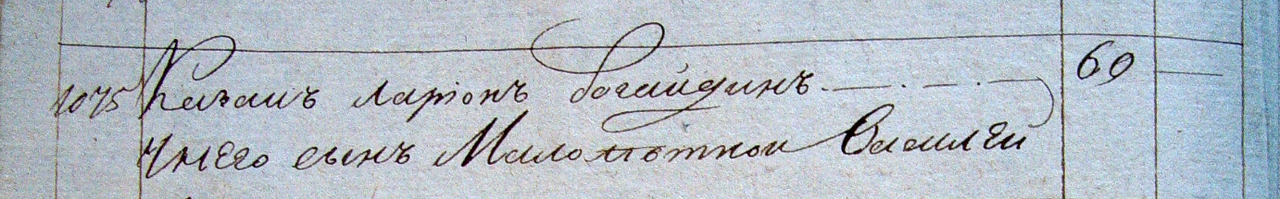 1075 Казакъ Ларіонъ богайдинъ. —. —. — 69 —
Унего сынъ Малолѣтной Василей